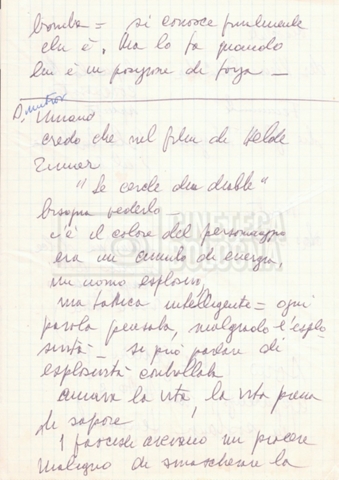 bomba = si conosce finalmente
chi è. Ma lo fa quando
lui è in posizione di forza —
Dimitrov
umano
credo che nel film di Helde
"Le cercle du diable"
bisogna vederlo
c'è il colore del personaggio
era un cumulo di energia,
un uomo esplosivo,
ma tattica intelligente = ogni
parola pensata, malgrado l'esplo
sività — si può parlare di
esplosività controllata
amava la vita, la vita piena
di sapore
I fascisti avevano un piacere
maligno di smascherare la
CINETECA
BOLOGNA